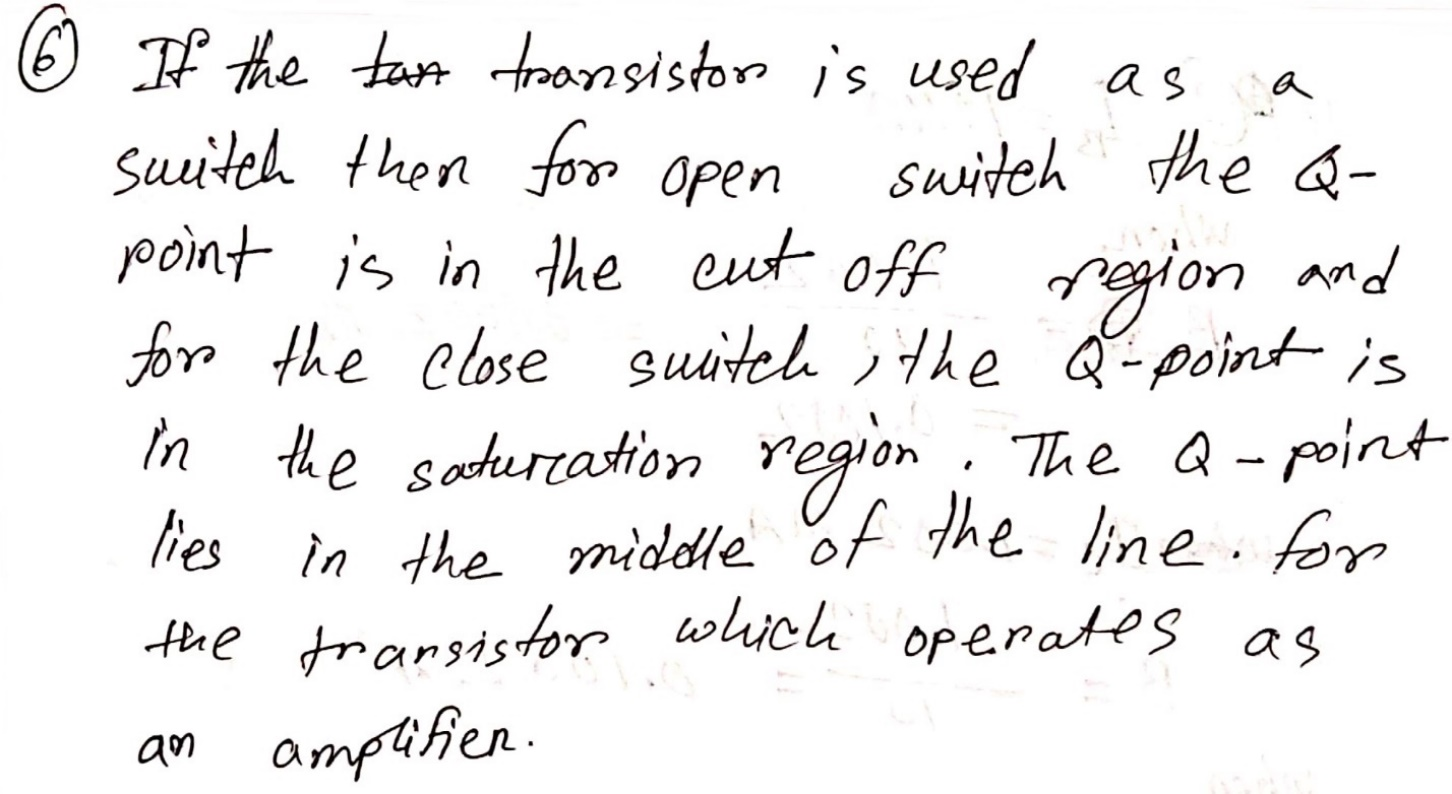 ⑥ If the tan transistor is used as a
switch then for open switch the Q-
point is in the cut off region and
for the close switch, the Q-point is
in the saturation region. The Q-point
lies in the middle of the line. for
the transistor which operates as
an amplifier.